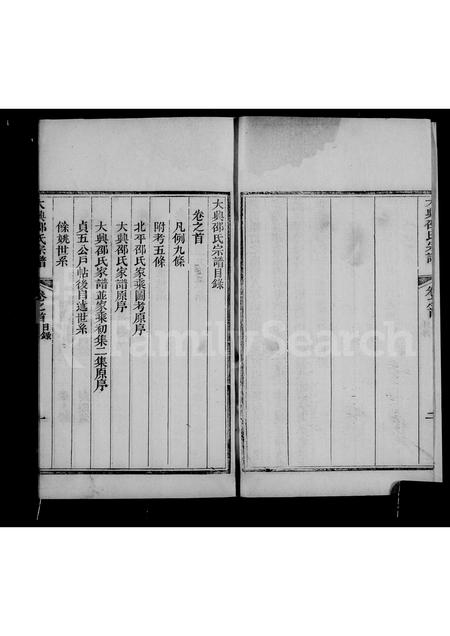 大興邵氏宗譜
卷之首
二
大興邵氏宗譜目錄
卷之首
凡例九條
附考五條
北平邵氏家乘圖考原序
大興邵氏家譜原序
大興邵氏家譜並家乘初集二集原序
貞五公戶帖後自述世系
餘姚世系
大興邵氏宗譜
卷之首 目錄
一
FamilySearch